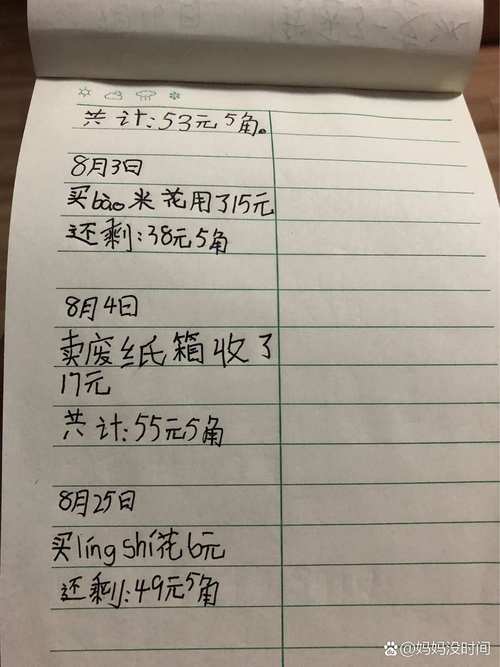 共计:53元5角。
8月3日
买bào米花用了15元
还剩:38元5角
8月4日
卖废纸箱收了
17元
共计:55元5角
8月25日
买líng shí花6元
还剩:49元5角
@妈妈没时间